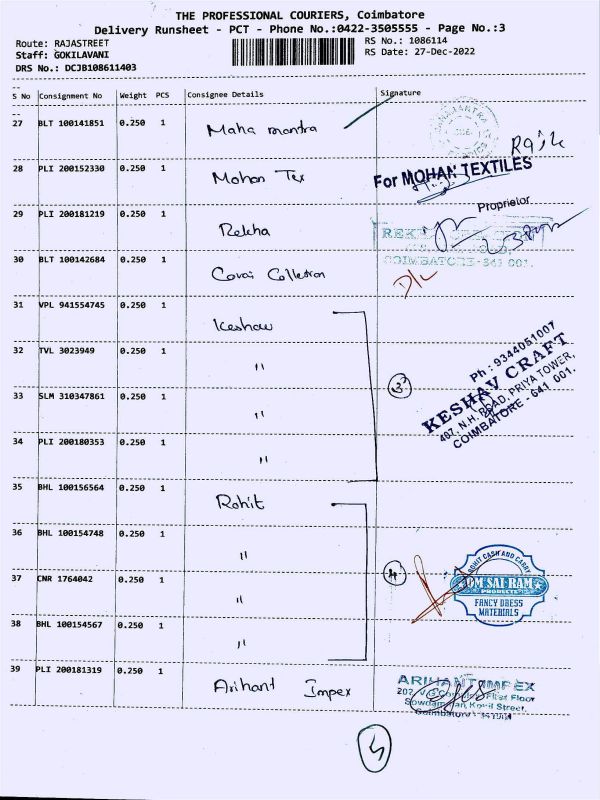 THE PROFESSIONAL COURIERS, Coimbatore
Delivery Runsheet - PCT - Phone No.:0422-3505555 - Page No.:3
Route: RAJASTREET
RS No.: 1086114
Staff: GOKILAVANI
RS Date: 27-Dec-2022
DRS No.: DCJB108611403
S No Consignment No Weight PCS Consignee Details Signature
27 BLT 100141851 0.250 1 Maha mantra
28 PLI 200152330 0.250 1 Mohan Tex
For MOHAN TEXTILES
Proprietor
29 PLI 200181219 0.250 1 Rekha
COIMBATORE-641 001.
30 BLT 100142684 0.250 1 Covai Collection
D/C
31 VPL 941554745 0.250 1 Keshav
32 TVL 3023949 0.250 1 "
33 SLM 310347861 0.250 1 "
34 PLI 200180353 0.250 1 "
Ph : 9344051007
KESHAV CRAFT
407, N.H. ROAD, PRIYA TOWER,
COIMBATORE - 641 001.
35 BHL 100156564 0.250 1 Rohit
36 BHL 100154748 0.250 1 "
37 CNR 1764042 0.250 1 "
4
ROHIT CASH AND CARRY
OM SAI RAM
PRODUCTS
FANCY DRESS
MATERIALS
38 BHL 100154567 0.250 1 "
39 PLI 200181319 0.250 1 Arihant Impex
ARIHANT IMPEX